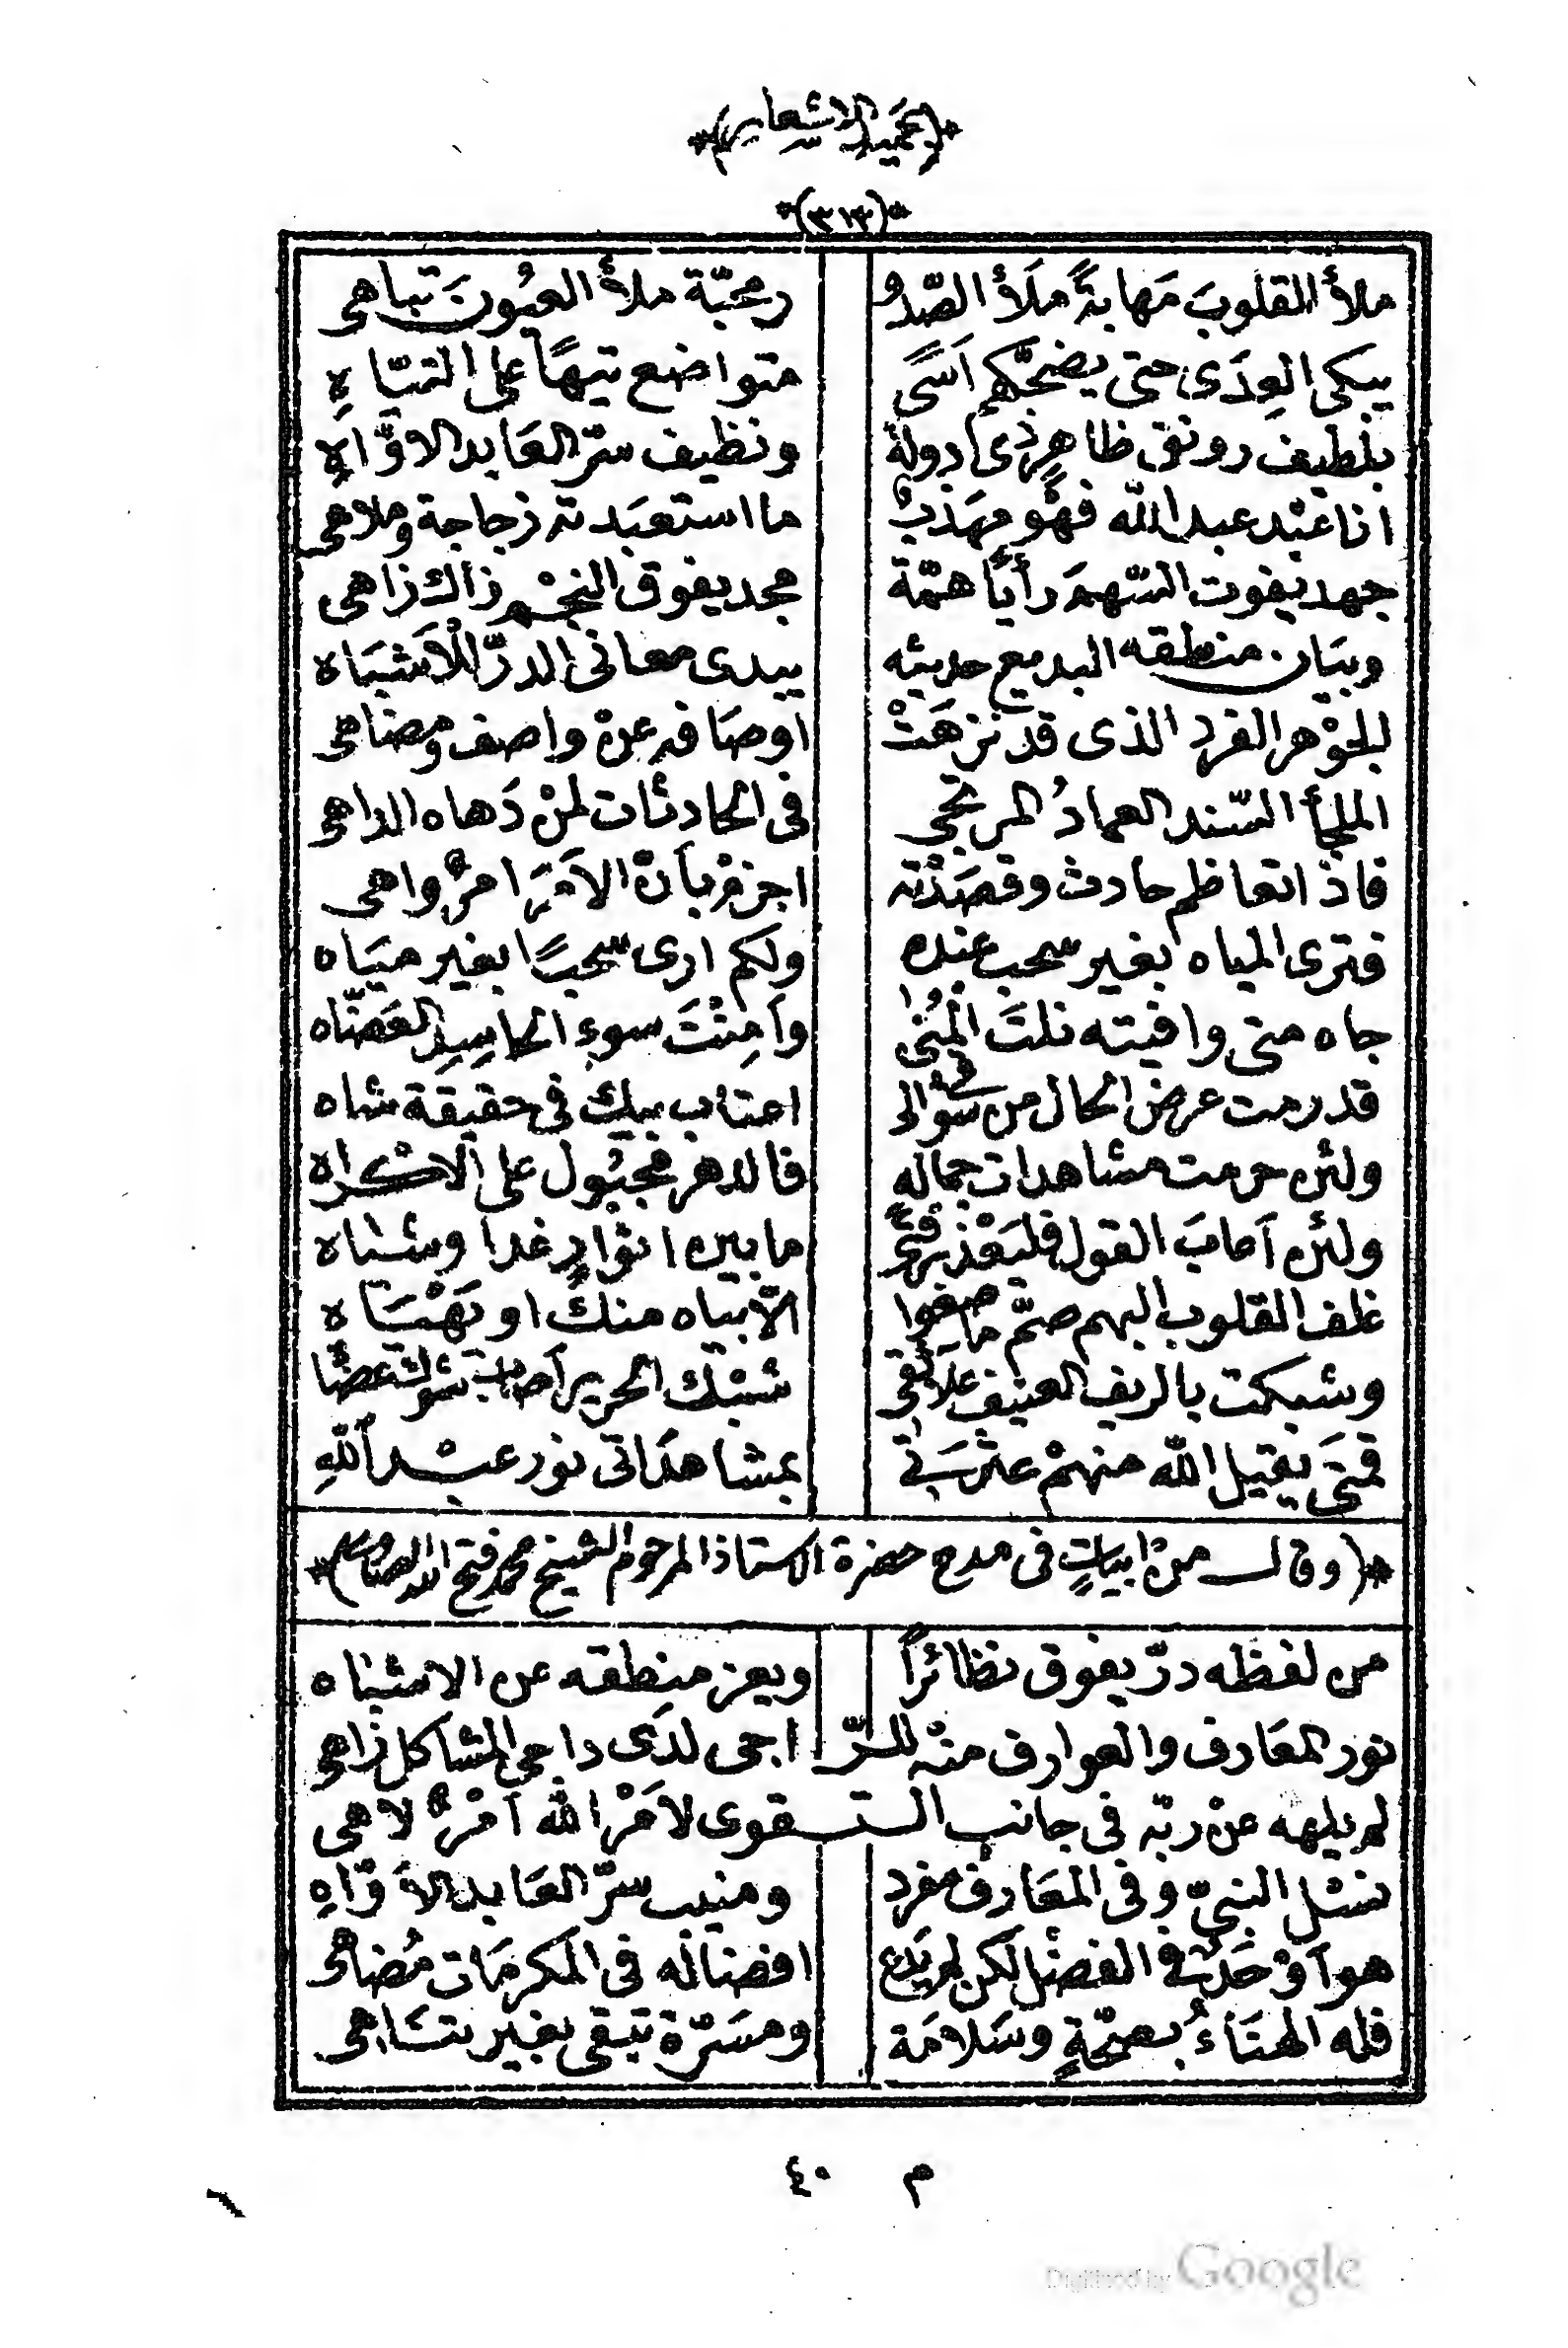 (حميد الاشعار)
(٣١٣)
ملأ القلوبَ مَهابةً ملَأ الصّدُو رمحبّة ملأ العيُونَ تباهى
يبكى العِدَى حتى يضحّكهم اَسًى متواضع تيهًا على التيّاهِ
بلطيف رونق ظاهرٍ ذى دولة ونظيف سرّ العَابد الاوّاهِ
انا عَبْد عبد الله فهْو مهَذبٌ ما استعبَدته زجاجة وملاهى
جهد يفوت السّهمَ رأيًا همّة مجد يفوق النجْم ذاك زاهى
وبيَان منطقه البديع حديثه يبدى معانى الدرّ للْاَشبَاه
الجوْهر الفرد الذى قد نزهَتْ اوصَافه عنْ واصف ومضاهى
الملجأ السّند العمادُ المرتجى فى الحادثات لمنْ دَهاه الداهى
فاذا تعاظم حادث وقصَدْته اجزمْ بأنّ الاَمْرَ امرٌ واهى
فترى المياه بغير سحب عنده ولكم ارى سحبًا بغير ميَاه
جاه متى وافيته نلتَ المُنٰى وأمِنْتَ سوء الحاسِدِ العَضّاه
قد رمت عرض الحال من شوقى الى اعتاب بيك فى حقيقة شاه
ولئن حرمت مشاهدات جماله فالدهر مجبُول على الاكراه
ولئن اَصابَ القول فليَعْذر فتًى ما بين اثوارٍ غدا وشياه
غلف القلوب البهم صمّ ما صغوا الّا بياه منك او بهْيَاه
وشبكت بالريف العنيف علائقى شبْك الحرير اَصابَ شوك عضَاه
فمتى يقيل الله منهمْ عثرَتى بمشاهدَاتى نور عبْد اللهِ
(وقال من ابياتٍ فى مدح حضرة الاستاذ المرحوم الشيخ محمد فتح الله)
من لفظه درّ يفوق نظائرًا ويعز منطقه عن الاشباه
نور المعَارف والعوارف منْه للسّر اجى لدَى داجى المشاكل زاهى
لم يلهه عنْ ربّه فى جانب التقوى لاَمْر الله اَمْرٌ لاهى
نسْل النبىّ وفى المعَارف مفرد ومنيب سرّ العَابد الاَوّاهِ
هو اَوْحَد فى الفضْل لكن لم يدع افضاله فى المكرمَات مُضاهى
فله الهنَاءُ بصحّةٍ وسَلامَة ومسَرّة تبقى بغير تنَاهى
م ٤٠
Digitized by Google